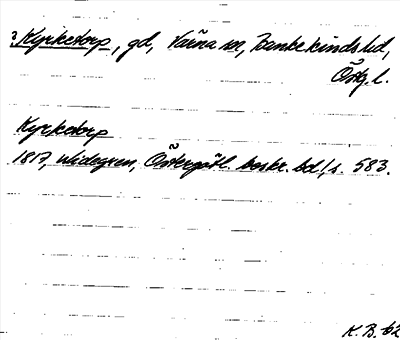 3. Kyrketorp, gd, Värna sn, Bankekinds hd,
Östg. l.
Kyrketorp
1817, Widegren, Östergötl. beskr. bd 1, s. 583.
K. B. 62